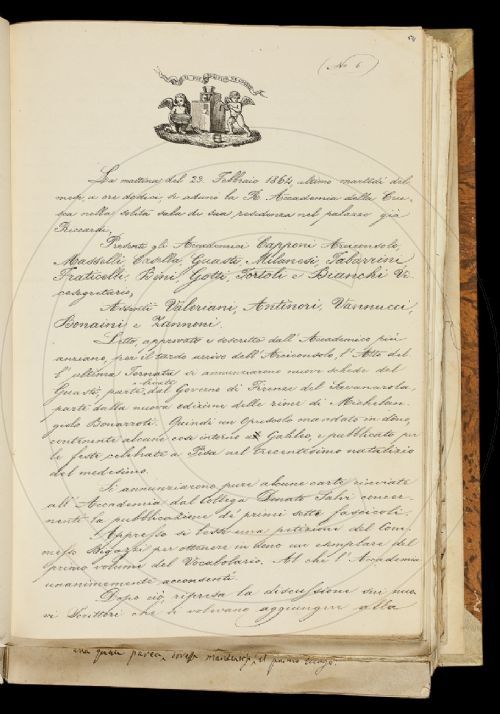 IL PIÙ BEL FIOR NE COGLIE
(No 6)
La mattina del 23. Febbraio 1864, ultimo martedì del
mese, a ore dodici, si adunò la R. Accademia della Cru-
sca nella solita sala di sua residenza nel palazzo già
Riccardi,
Presenti gli Accademici Capponi Arciconsolo,
Masselli Casella, Guasti, Milanesi, Tabarrini
Fraticelli, Bini, Gotti, Tortoli e Bianchi Vi-
cesegretario,
Assenti Valeriani, Antinori, Vannucci,
Bonaini e Zannoni.
Letto, approvato e descritto dall'Accademico più
anziano, per il tardo arrivo dell'Arciconsolo, l'Atto del-
l'ultima Tornata si annunciarono nuove schede del
Guasti, parte del Governo di Firenze del Savonarola,
parte dalla nuova edizione delle rime di Michelan-
giolo Bonarroti. Quindi un Opuscolo mandato in dono,
contenente alcune cose intorno a Galileo, e pubblicato per
le feste celebrate a Pisa nel trecentesimo natalizio
del medesimo.
Si annunziarono pure alcune carte ricevute
all'Accademia dal Collega Donato Salvi concer-
nenti la pubblicazione de' primi sette fascicoli.
Appresso si lesse una petizione del Com-
messo Bigazzi per ottenere in dono un esemplare del
primo volume del Vocabolario. Al che l'Accademia
unanimemente acconsentì.
Dopo ciò, ripresa la discussione sui nuo-
vi Scrittori che si volevano aggiungere alla
una quasi parea, il primo luogo.